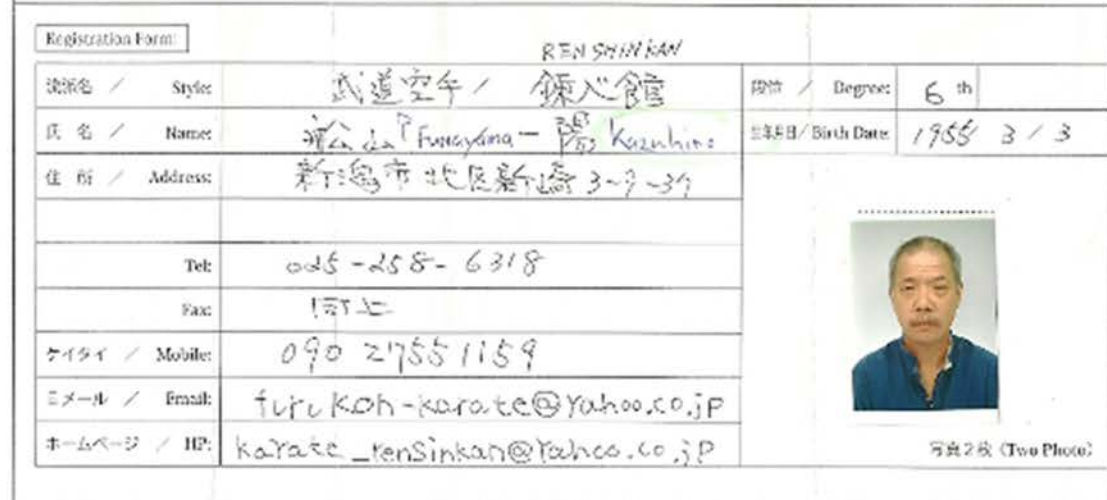 Registration Form:
RENSHINKAN
流派名 / Style: 武道空手 / 錬心館
段位 / Degree: 6 th
氏名 / Name: 山 Funayama 一 陽 Kazuhiro
生年月日 / Birth Date: 1955 3 / 3
住所 / Address: 新潟市北区新崎 3-7-39
Tel: 025-258-6318
Fax: 同上
ケイタイ / Mobile: 090 27551159
Eメール / Email: furukoh-karate@yahoo.co.jp
ホームページ / HP: karate_rensinkan@yahoo.co.jp
写真2枚 (Two Photo)